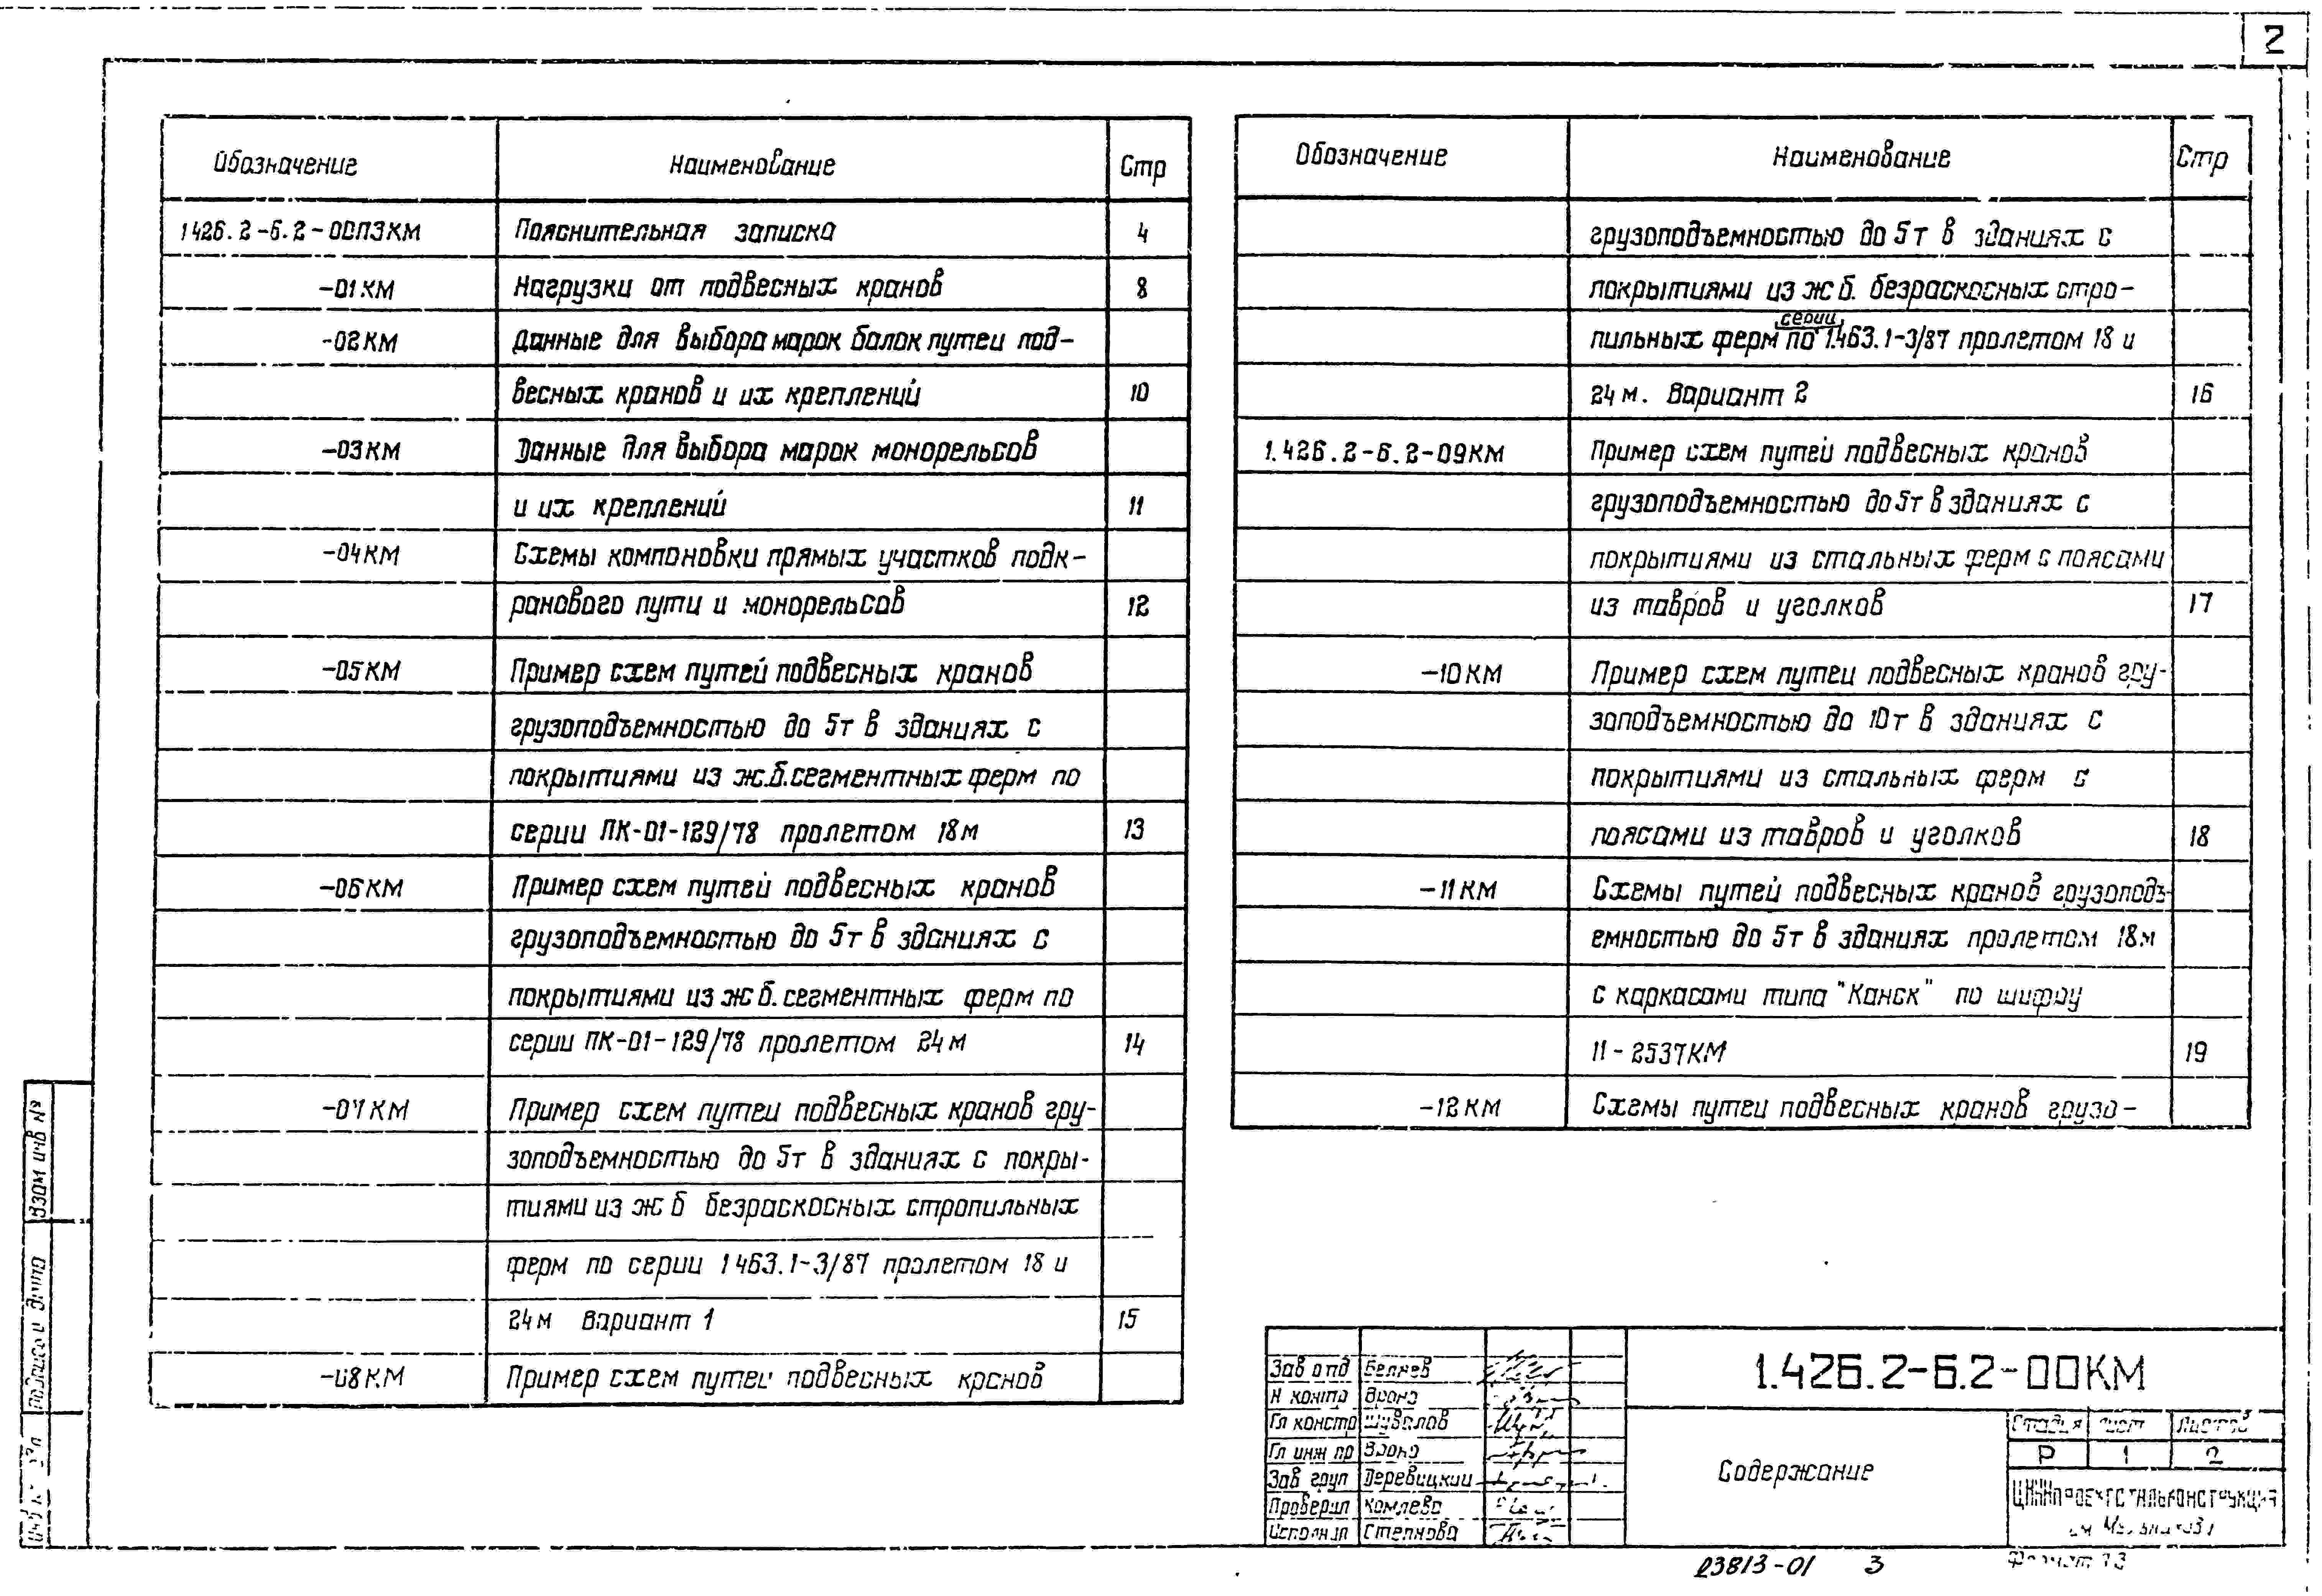 2
Обозначение Наименование Стр
1426.2-6.2-00ПЗКМ Пояснительная записка 4
-01КМ Нагрузки от подвесных кранов 8
-02КМ Данные для выбора марок балок путеи под-
весных кранов и их креплений 10
-03КМ Данные для выбора марок монорельсов
и их креплений 11
-04КМ Схемы компоновки прямых участков подк-
ранового пути и монорельсов 12
-05КМ Пример схем путей подвесных кранов
грузоподъемностью до 5т в зданиях с
покрытиями из ж.б.сегментных ферм по
серии ПК-01-129/78 пролетом 18м 13
-06КМ Пример схем путей подвесных кранов
грузоподъемностью до 5т в зданиях с
покрытиями из ж б.сегментных ферм по
серии ПК-01-129/78 пролетом 24м 14
-07КМ Пример схем путеи подвесных кранов гру-
зоподъемностью до 5т в зданиях с покры-
тиями из ж б безраскосных стропильных
ферм по серии 1463.1-3/87 пролетом 18 и
24м Вариант 1 15
-08КМ Пример схем путеи подвесных кранов
Обозначение Наименование Стр
грузоподъемностью до 5т в зданиях с
покрытиями из ж б. безраскосных стро-
серии
пильных ферм по 1.463.1-3/87 пролетом 18 и
24м. Вариант 2 16
1.426.2-6.2-09КМ Пример схем путей подвесных кранов
грузоподъемностью до 5т в зданиях с
покрытиями из стальных ферм с поясами
из тавров и уголков 17
-10КМ Пример схем путеи подвесных кранов гру-
заподъемностью до 10т в зданиях с
покрытиями из стальных ферм с
поясами из тавров и уголков 18
-11КМ Схемы путей подвесных кранов грузоподъ-
емностью до 5т в зданиях пролетом 18м
с каркасами типа "Канск" по шифру
11-2537КМ 19
-12КМ Схемы путеи подвесных кранов грузо-
Взам инв №
Подпись и дата
Зав отд Беляев
Н контр Врона
Гл констр Шувалов
Гл инж пр Врона
Зав груп Деревицкий
Проверил Комлева
Исполнил
1.426.2-6.2-00КМ
Содержание
Стадия Лист Листов
Р 1 2
ЦНИИпроектстальконструкция
им Мельникова
23813-01 3
Формат А3